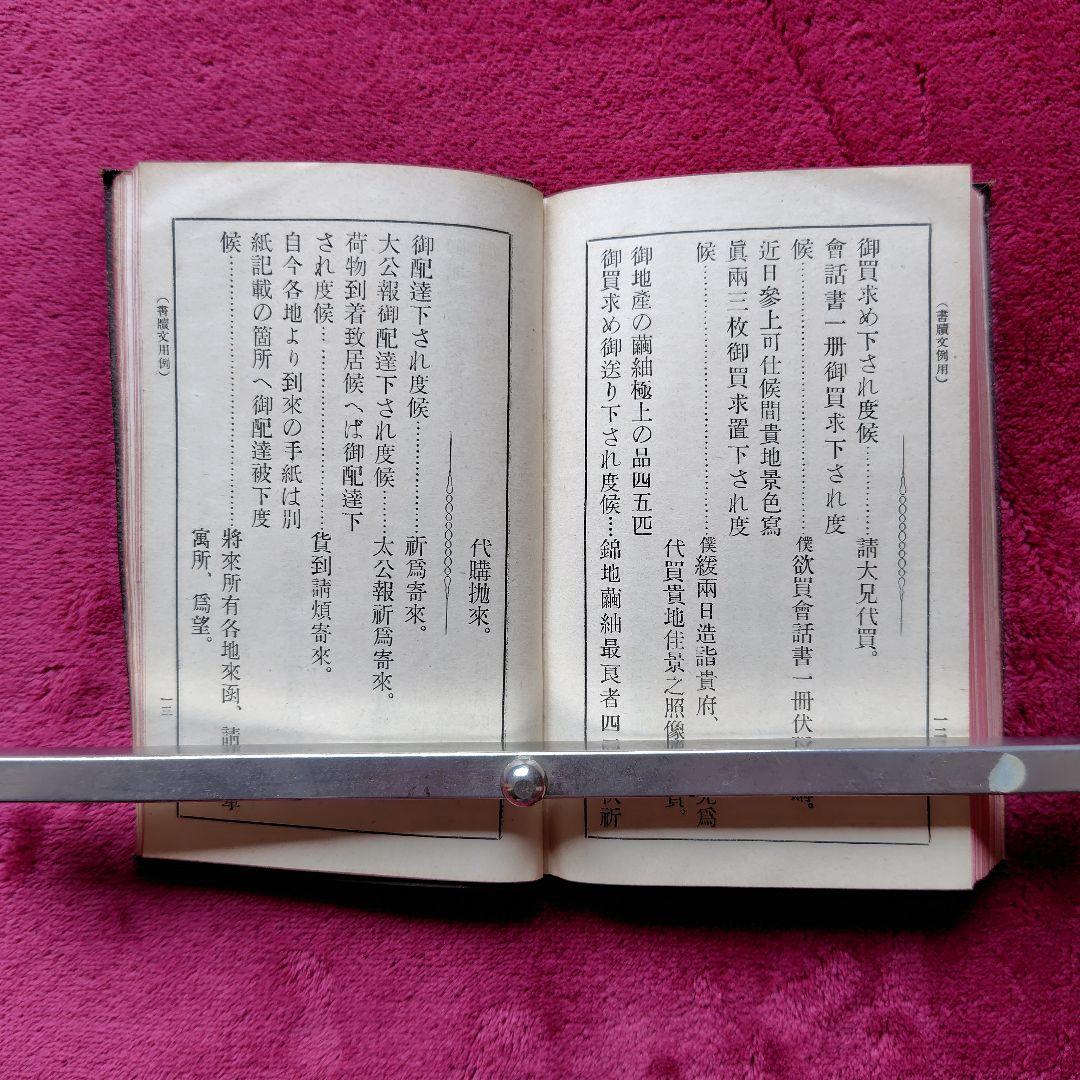 (書牘文例用)
御買求め下され度候…………請大兄代買。
會話書一册御買求下され度
候……………………………僕欲買會話書一冊伏
近日參上可仕候間貴地景色寫
眞兩三枚御買求置下され度
候……………………………僕緩兩日造詣貴府、爲
代買貴地佳景之照像
御地產の繭紬極上の品四五匹
御買求め御送り下され度候…錦地繭紬最良者四祈
一二
代購抛來。
御配達下され度候…………祈爲寄來。
大公報御配達下され度候……太公報祈爲寄來。
荷物到着致居候へば御配達下
され度候……………………貨到請煩寄來。
自今各地より到來の手紙は別
紙記載の箇所へ御配達被下度
候……………………………將來所有各地來函、請
寓所、爲望。
(書牘文用例)
一三